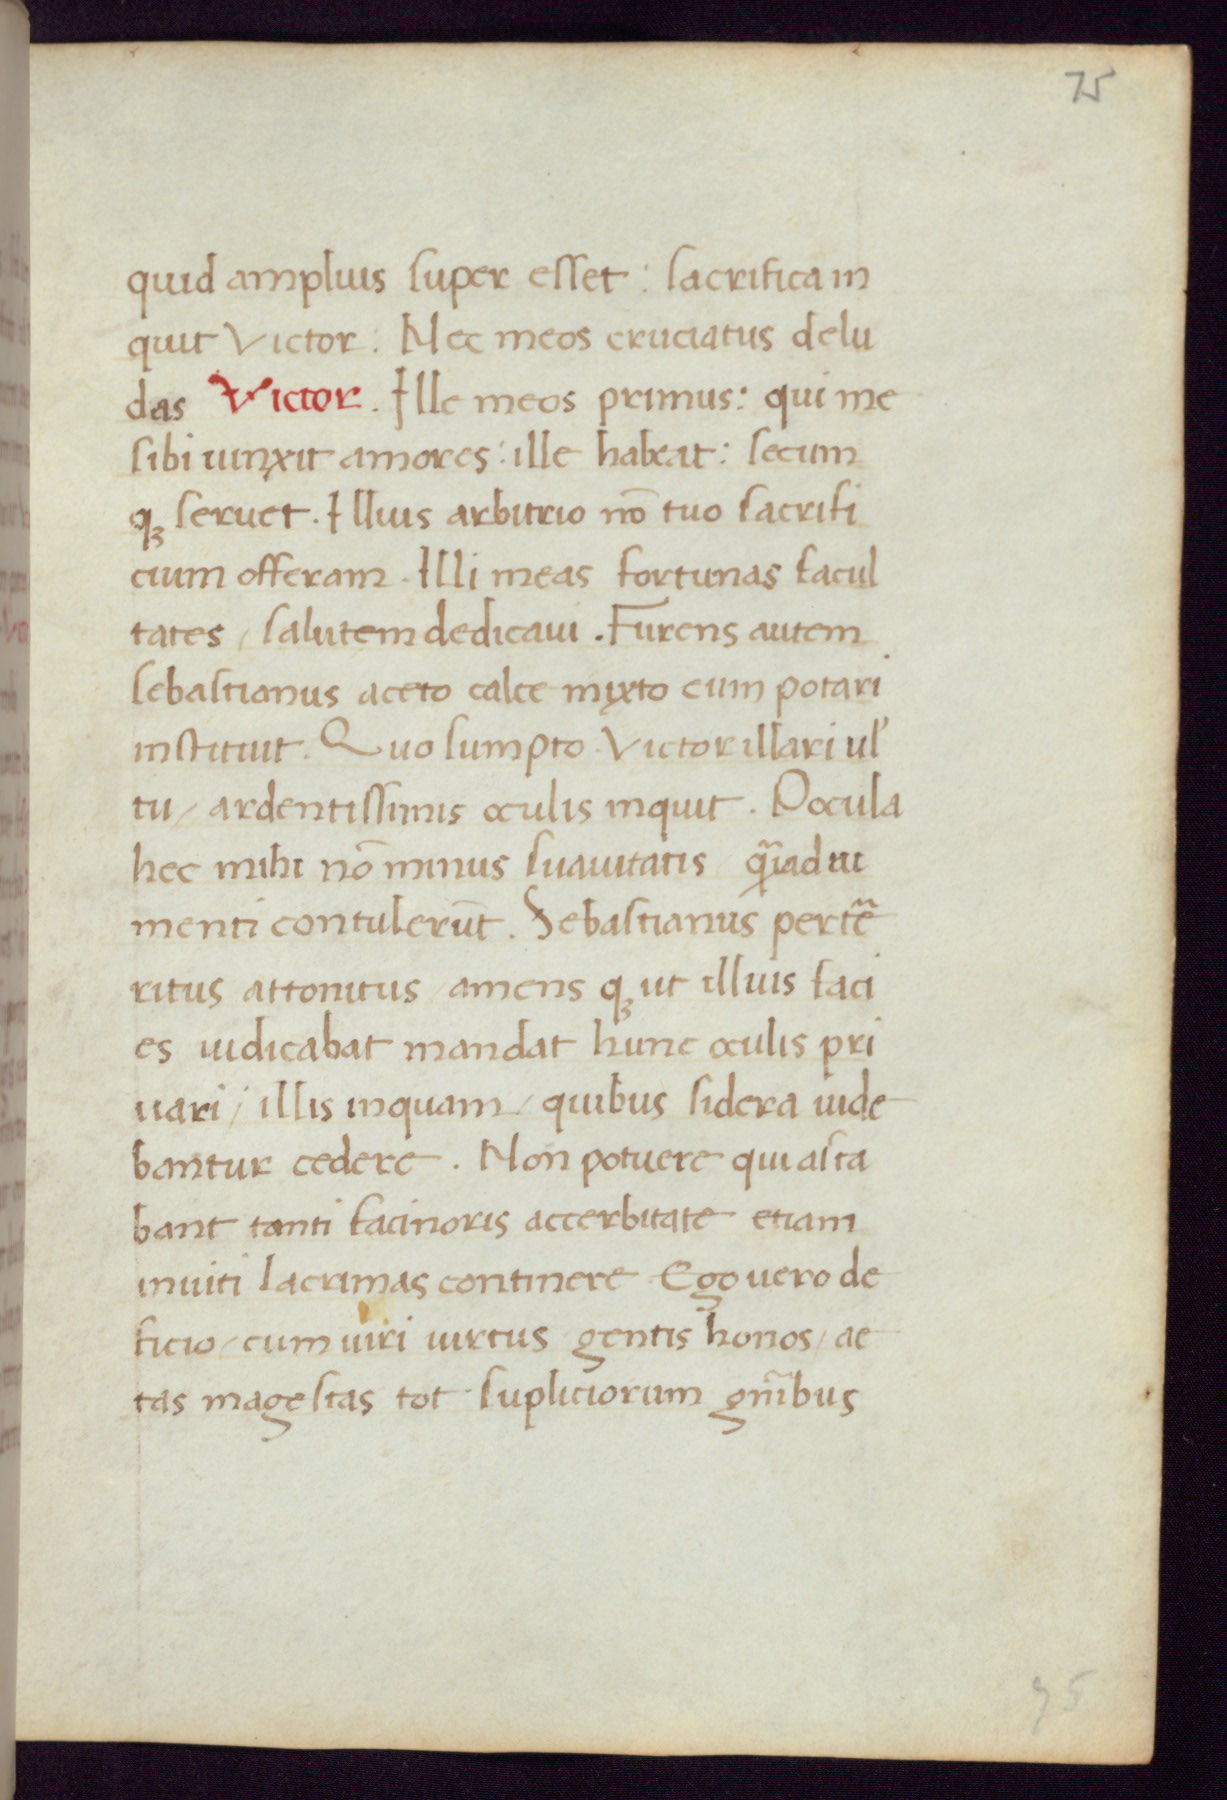 75
quid ampluis super esset : sacrifica in
quit Victor : Nec meos cruciatus delu
das Victor . Ille meos primus : qui me
sibi iunxit amores : ille habeat : secum
qꝫ seruet . Illius arbitrio nō tuo sacrifi
cium offeram . Illi meas fortunas facul
tates / salutem dedicaui . Furens autem
sebastianus aceto calce mixto eum potari
instituit . Quo sumpto . Victor illari ul'
tu / ardentissimis oculis inquit . Pocula
hec mihi nō minus suauitatis q̃ iadiu
menti contulerūt . Sebastianus perte͂
ritus attonitus / amens qꝫ ut illius faci
es iudicabat mandat hunc oculis pri
uari / illis inquam / quibus sidera uide
bantur cedere . Non potuere qui asta
bant tanti facinoris accerbitate etiam
inuiti lacrimas continere . Ego uero de
ficio / cum uiri uirtus gentis honos / ae
tas magestas tot supliciorum gn̄ibus
75